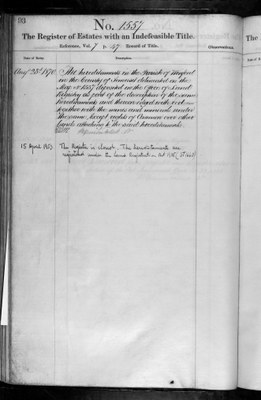 98
No. 1557
The Register of Estates with an Indefeasible Title.
Reference, Vol. 7 p. 157 Record of Title.
Observations
Date of Entry
Description
Aug 28th 1870
The hereditaments in the Parish of
in the County of Somerset delineated on the
Map No 1557 deposited in the Office of Land
Registry as part of the description of the same
hereditaments and thereon edged with red
together with the mines and minerals under
the same, except rights of Common over other
lands attaching to the said hereditaments
15 April
The Register is closed. The hereditaments are
registered under the Land Registration Act
The